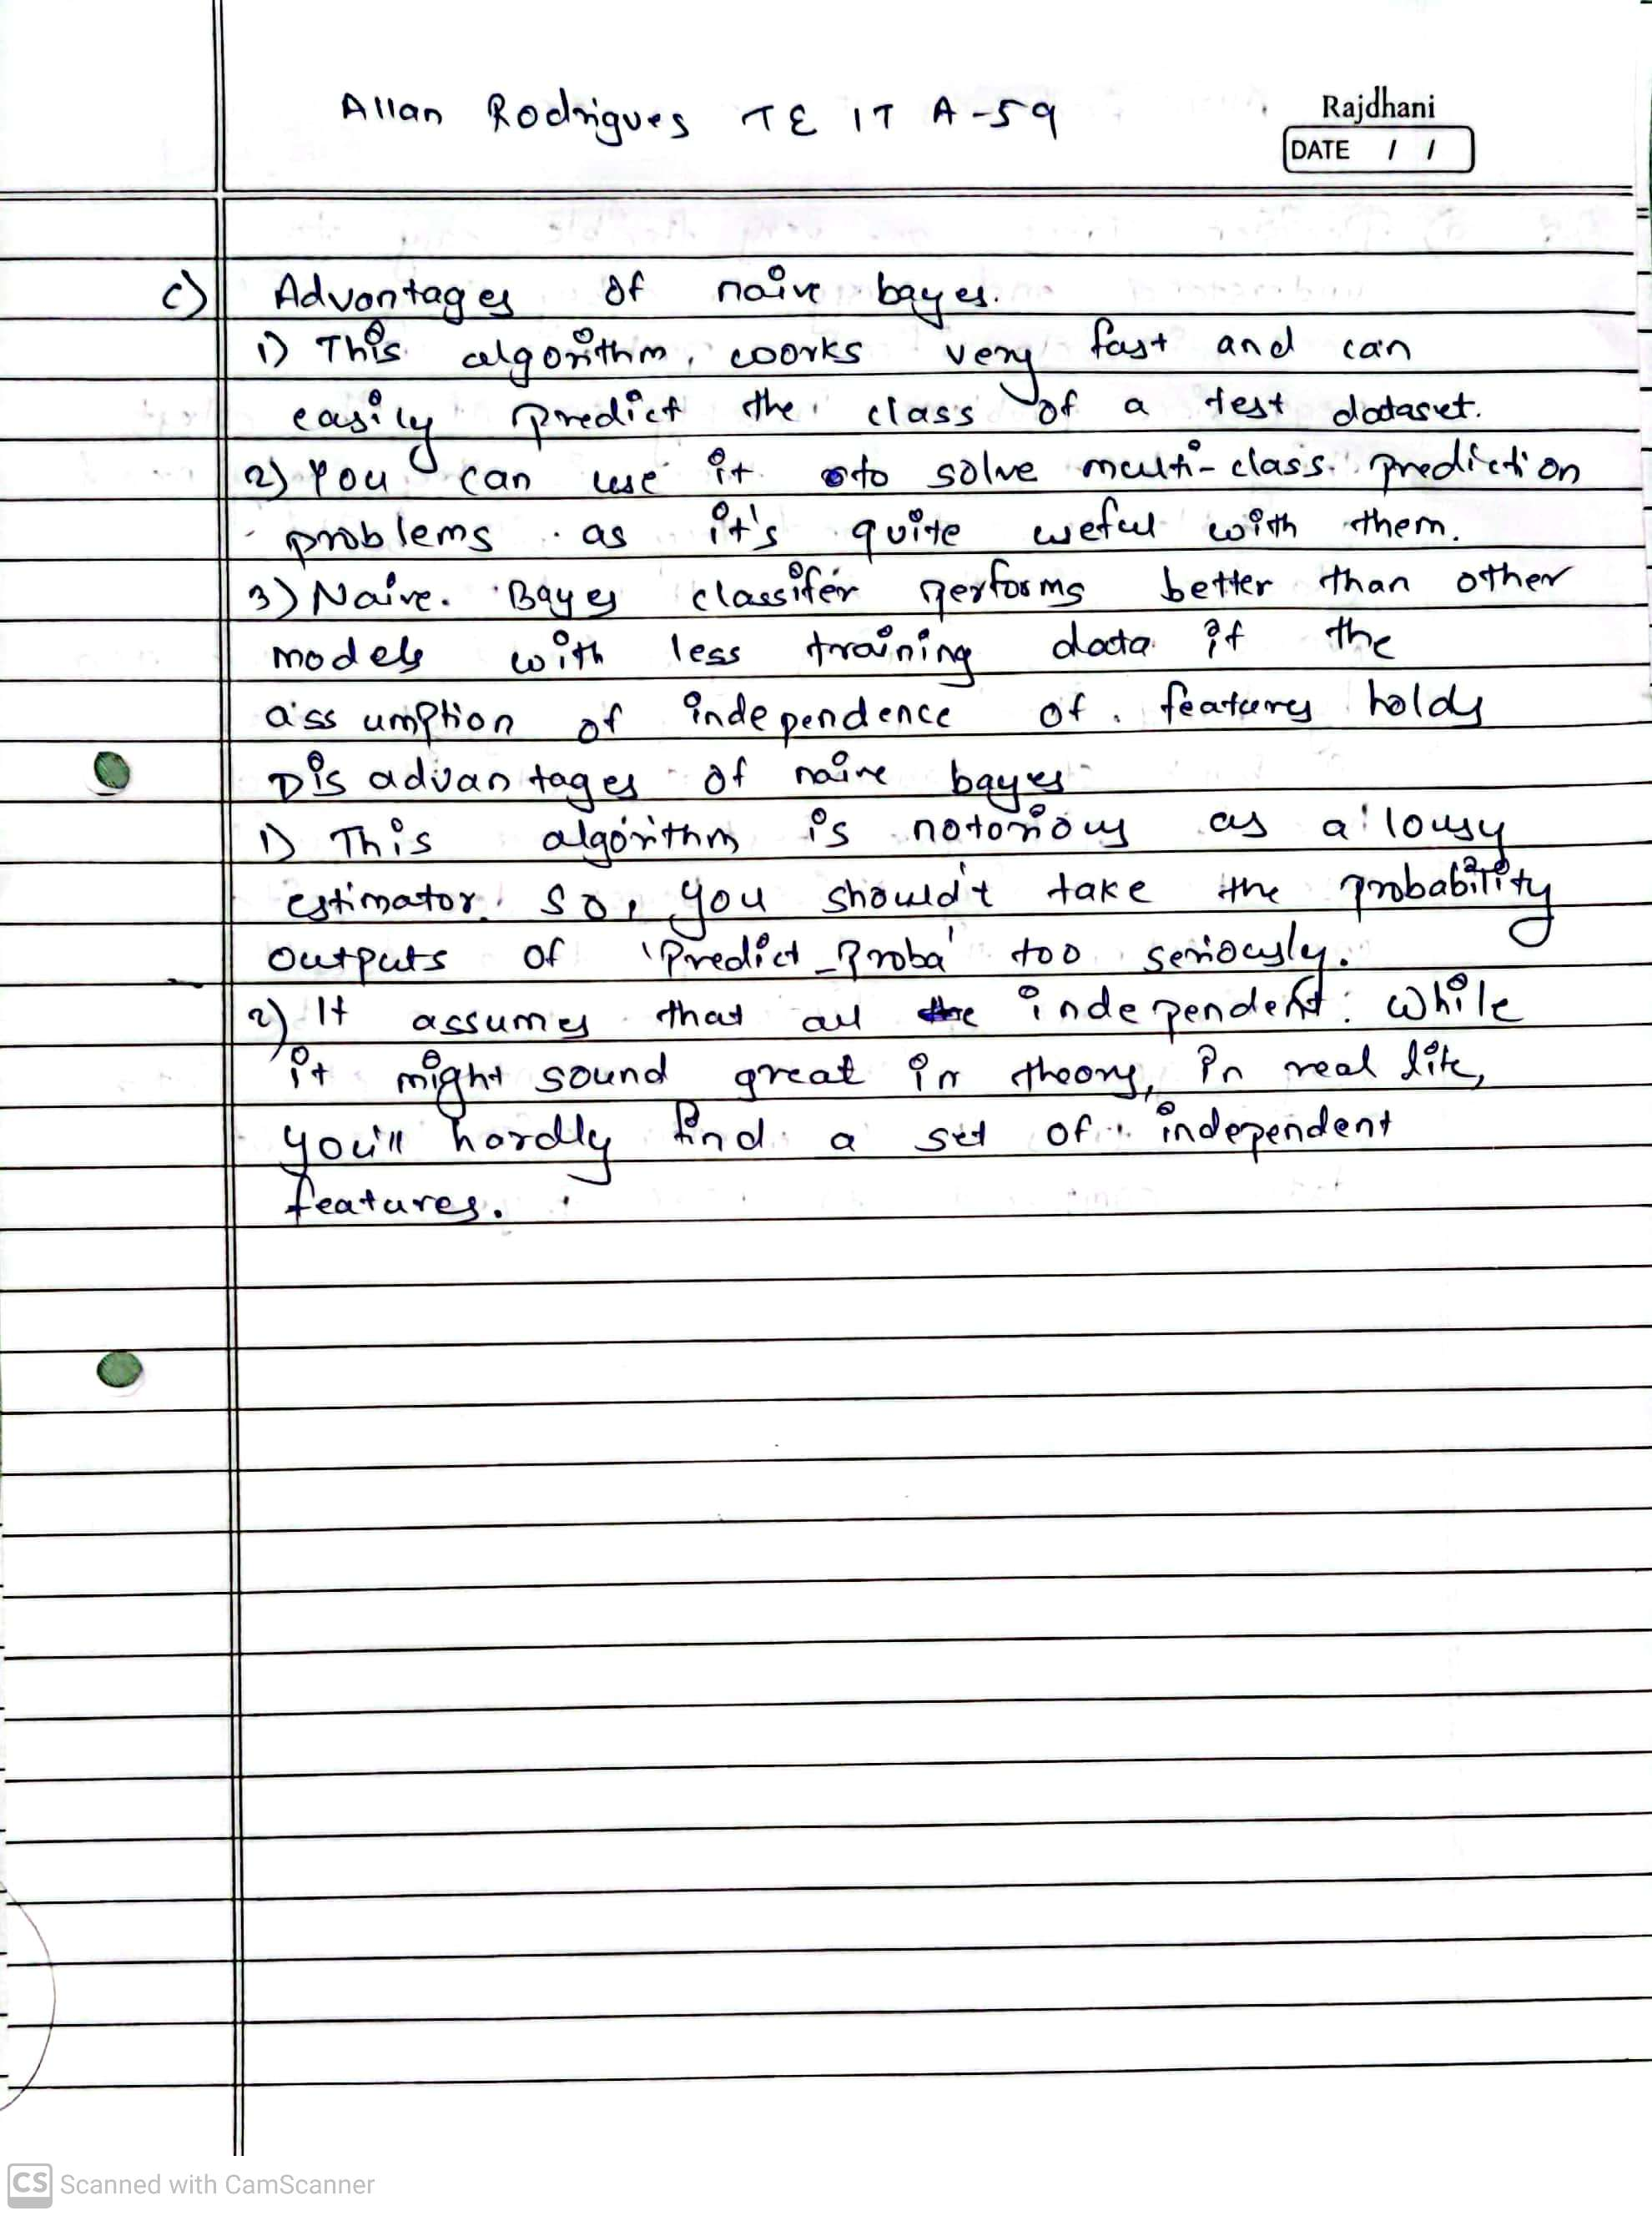 Allan Rodrigues TE IT A-59
Rajdhani
DATE / /
c) Advantages of naive bayes.
1) This algorithm works very fast and can
easily predict the class of a test dataset.
2) You can use it to solve multi-class prediction
problems as it's quite useful with them.
3) Naive Bayes classifer performs better than other
models with less training data if the
assumption of independence of features holds
Disadvantages of naive bayes
1) This algorithm is notorious as a lousy
estimator. So, you should't take the probability
outputs of 'Predict_Proba' too seriously.
2) It assumes that all the independent. While
it might sound great in theory, in real life,
you'll hardly find a set of independent
features.
CS Scanned with CamScanner